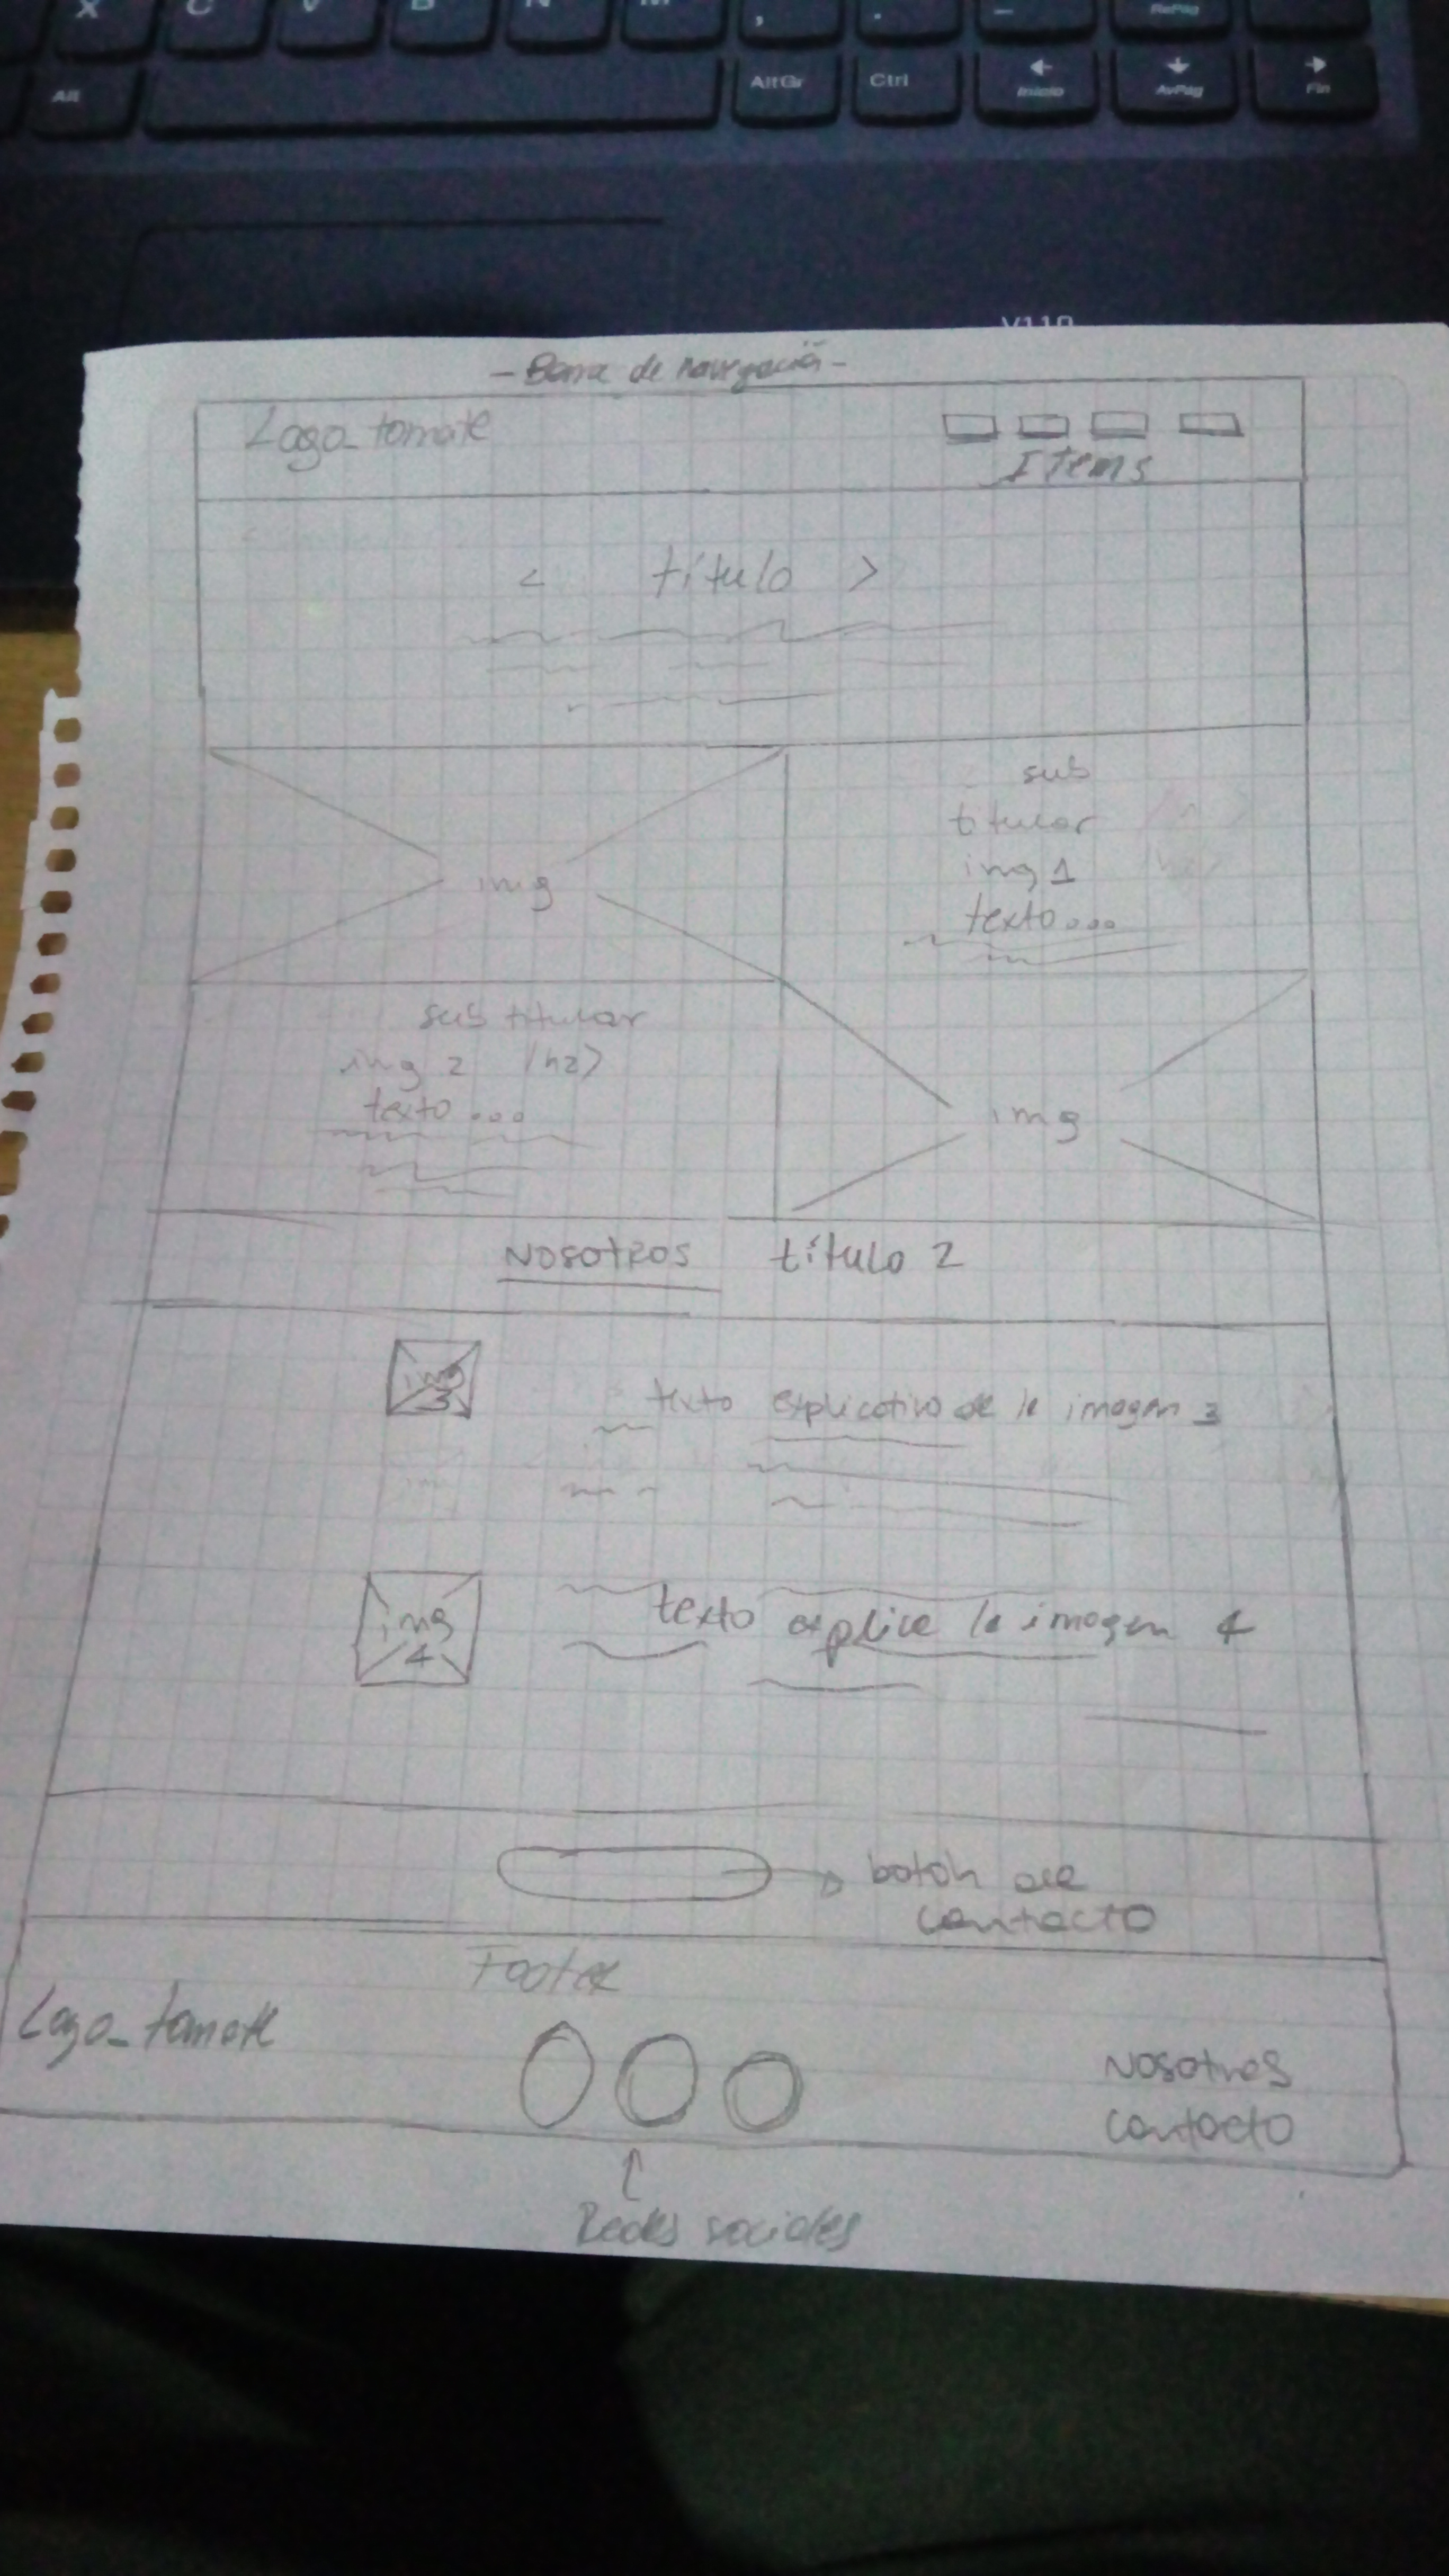 X C V B N M , . - RePág
Alt AltGr Ctrl Inicio AvPág Fin
V110
- Barra de navegación -
Logo_tomate
Items
< título >
img
sub
titular
img 1
texto...
sub titular
img 2 <h2>
texto...
img
NOSOTROS título 2
img
3
texto explicativo de la imagen 3
img
4
texto explica la imagen 4
botón de
contacto
Footer
Logo_tomate
Nosotros
contacto
Redes sociales